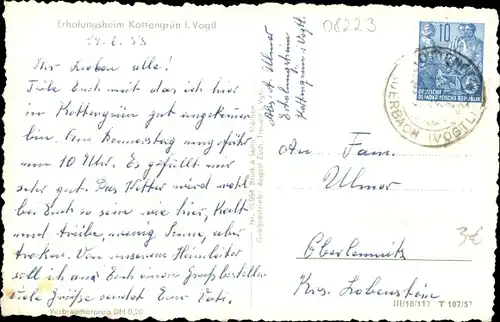 Erholungsheim Kottengrün i. Vogtl.
Ihr Lieben alle!
Teile Euch mit das ich hier
im Kottengrün gut angekommen
bin. Am Donnerstag ungefähr
um 10 Uhr. Es gefällt mir
sehr gut. Das Wetter wird wohl
bei Euch so sein wie hier, Kalt
und trübe, wenig Sonne, aber
troken. Von unserem Heimleiter
soll ich an Euch einen Gruß bestellen
viele Grüße sendet Euer Vati.
Verbraucherpreis DM 0,20
Ulmer
Erholungsheim
Kottengrün i. Vogtl.
08223
10
DEUTSCHE
DEMOKRATISCHE REPUBLIK
AUERBACH (VOGTL)
An Fam.
Ulmer
Oberlemnitz
Krs. Lobenstein
3€
III/18/117 T 107/53